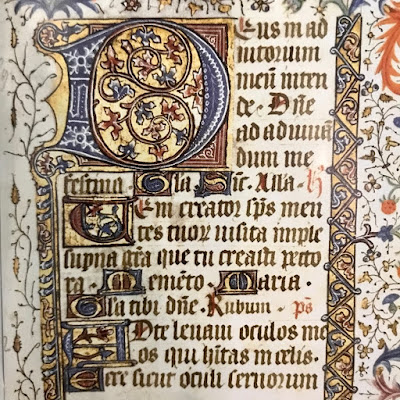 Deus in ad
iutorium
meū inten
de · Dn̄e
ad adiuuā
dum me
festina · Gl̄a · Sic̄ · All̄a · H̄
Veni creator sp̄s men
tes tuoꝝ uisita imple
sup̄na gr̄a que tu creasti pecto
ra · Memēto · Maria ·
Gl̄a tibi dn̄e · Rubum · p̄s
Ad te leuaui oculos me
os qui h̄itas in celis ·
Ecce sicut oculi seruorum